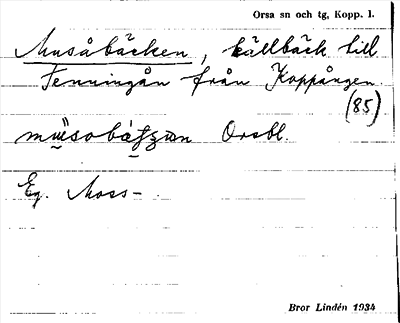 Orsa sn och tg, Kopp. l.
Musåbäcken, källbäck till
Tenningån från Koppången.
(85)
Orsbl.
Eg. Moss-
Bror Lindén 1934